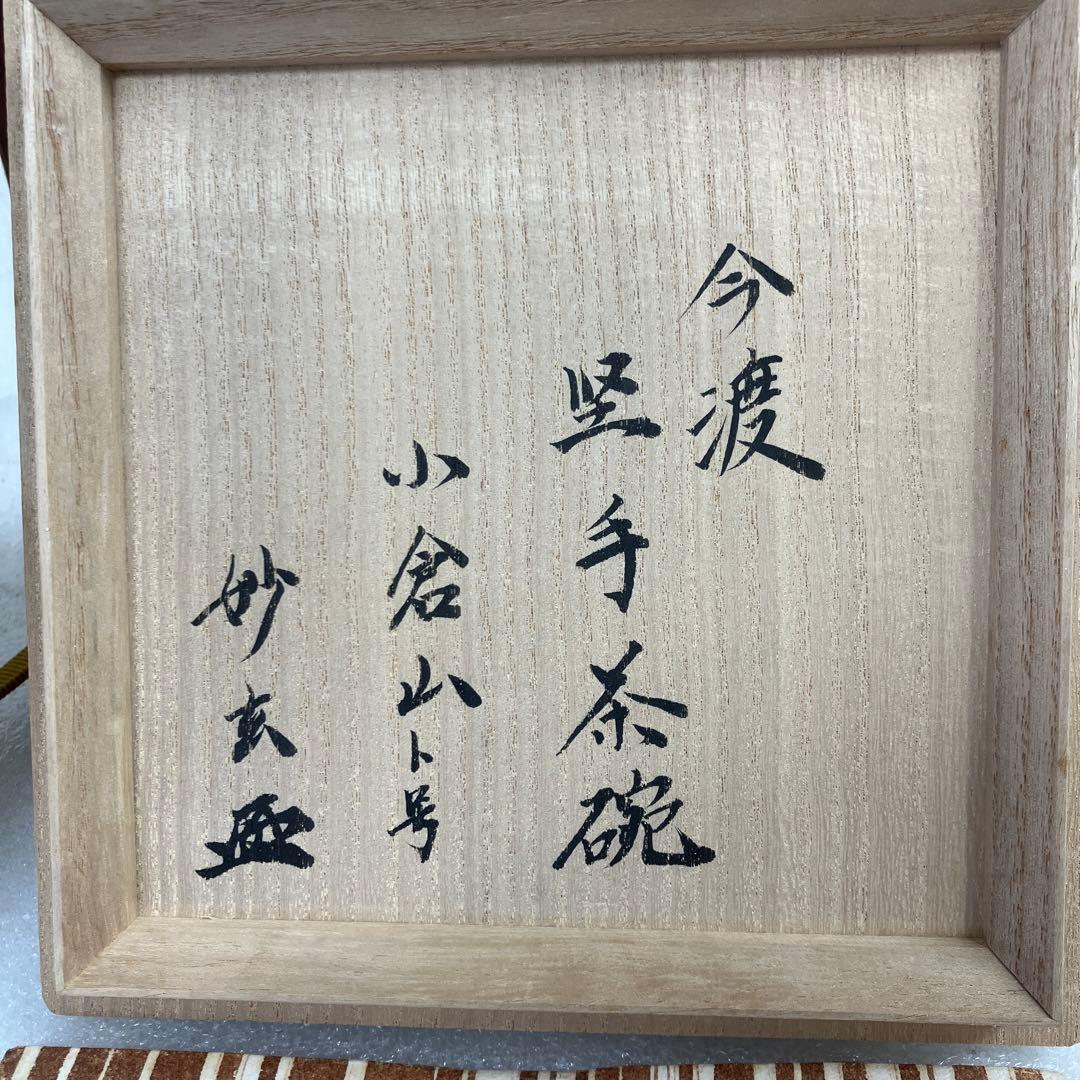 今渡
堅手茶碗
小倉山ト号
妙玄